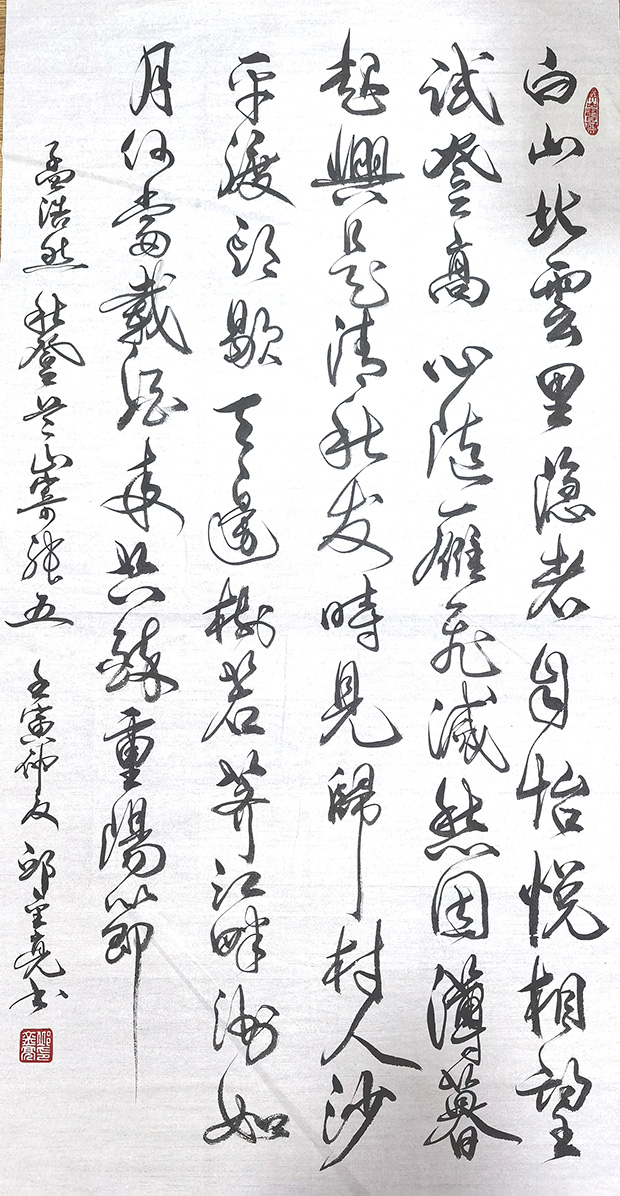 白山北雲里隐者自怡悦相望
試登高心随雁飛滅愁因薄暮
起興是清秋发時見歸村人沙
平渡頭歇天邊樹若薺江畔洲如
月何當載酒来共醉重陽節
孟浩然秋登兰山寄張五 壬寅仲夏 邱亮书